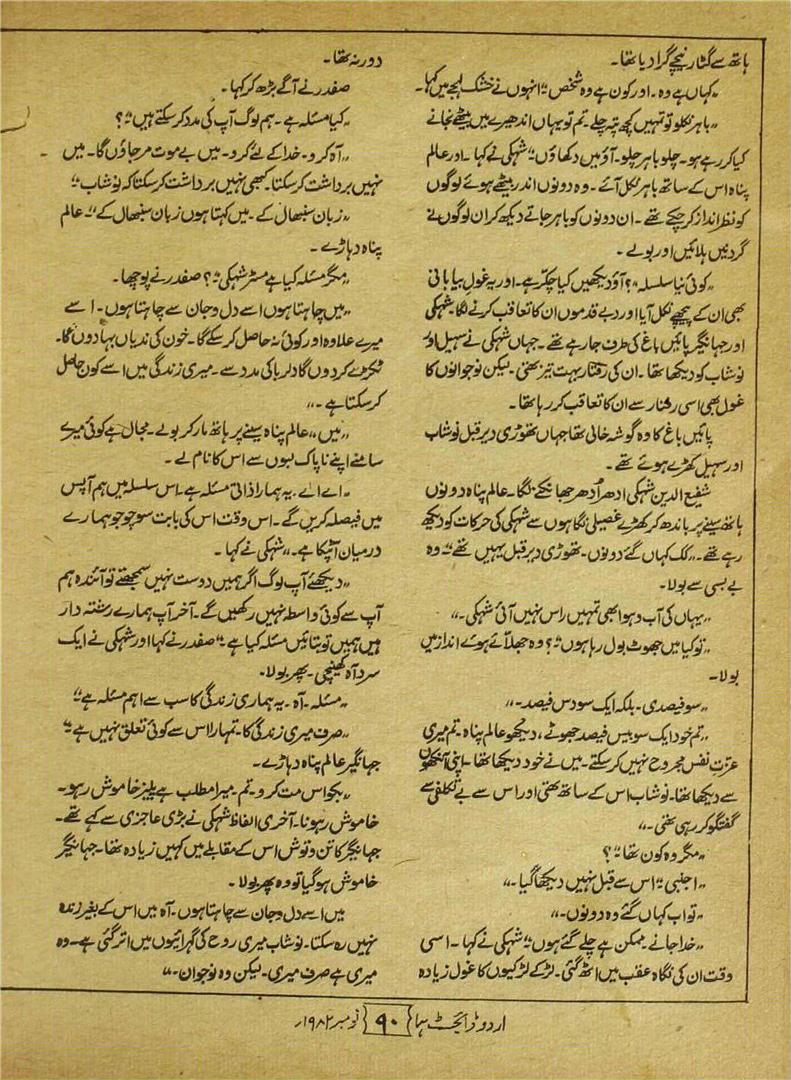 ہاتھ سے گٹار نیچے گرا دیا تھا۔
”کہاں ہے وہ۔ اور کون ہے وہ شخص“؟ انہوں نے خشک لہجے میں کہا۔
”باہر نکلو تو تمہیں کچھ پتہ چلے۔ تم تو یہاں اندھیرے میں بیٹھے نجانے
کیا کر رہے ہو۔ چلو باہر چلو۔ آؤ میں دکھاؤں“؟ شہکی نے کہا۔ اور عالم
پناہ اس کے ساتھ باہر نکل آئے۔ وہ دونوں اندر بیٹھے ہوئے لوگوں
کو نظر انداز کر چکے تھے۔ ان دونوں کو باہر جاتے دیکھ کر ان لوگوں نے
گردنیں ہلائیں اور بولے۔
”کوئی نیا سلسلہ“؟ آؤ دیکھیں کیا چکر ہے۔ اور یہ غول بیابانی
بھی ان کے پیچھے نکل آیا اور دبے قدموں ان کا تعاقب کرنے لگا۔ شہکی
اور جہانگیر پائیں باغ کی طرف جا رہے تھے۔ جہاں شہکی نے سہیل اور
نوشاب کو دیکھا تھا۔ ان کی رفتار بہت تیز تھی۔ لیکن نوجوانوں کا
غول بھی اسی رفتار سے ان کا تعاقب کر رہا تھا۔
پائیں باغ کا وہ گوشہ خالی تھا جہاں تھوڑی دیر قبل نوشاب
اور سہیل کھڑے ہوئے تھے۔
شفیع الدین شہکی ادھر اُدھر جھانکنے لگا۔ عالم پناہ دونوں
ہاتھ سینے پر باندھ کر کھڑے غصیلی نگاہوں سے شہکی کی حرکات کو دیکھ
رہے تھے۔ ”کک کہاں گئے دونوں۔ تھوڑی دیر قبل یہیں تھے“ وہ
بے بسی سے بولا۔
”یہاں کی آب و ہوا بھی تمہیں راس نہیں آئی شہکی۔“
”تو کیا میں جھوٹ بول رہا ہوں“؟ وہ جھلائے ہوئے انداز میں
بولا۔
”سو فیصدی۔ بلکہ ایک سو دس فیصد۔“
”تم خود ایک سو بیس فیصد جھوٹے، دیکھو عالم پناہ۔ تم میری
عزت نفس مجروح نہیں کر سکتے۔ میں نے خود دیکھا تھا۔ اپنی آنکھوں
سے دیکھا تھا۔ نوشاب اس کے ساتھ تھی اور اس سے بے تکلفی سے
گفتگو کر رہی تھی۔“
”مگر وہ کون تھا“؟
”اجنبی“ اس سے قبل نہیں دیکھا گیا۔“
”تو اب کہاں گئے وہ دونوں۔“
”خدا جانے۔ ممکن ہے چلے گئے ہوں“؟ شہکی نے کہا۔ اسی
وقت ان کی نگاہ عقب میں اٹھ گئی۔ لڑکے لڑکیوں کا غول زیادہ
دور نہ تھا۔
صفدر نے آگے بڑھ کر کہا۔
”کیا مسئلہ ہے۔ ہم لوگ آپ کی مدد کر سکتے ہیں“؟
”آہ کرو۔ خدا کے لئے کرو۔ میں بے موت مر جاؤں گا۔ میں
نہیں برداشت کر سکتا۔ کبھی نہیں برداشت کر سکتا کہ نوشاب“
”زبان سنبھال کے۔ میں کہتا ہوں زبان سنبھال کے“۔ عالم
پناہ دہاڑے۔
”مگر مسئلہ کیا ہے مسٹر شہکی“؟ صفدر نے پوچھا۔
”میں چاہتا ہوں اسے دل و جان سے چاہتا ہوں۔ اسے
میرے علاوہ اور کوئی نہ حاصل کر سکے گا۔ خون کی ندیاں بہا دوں گا۔
ٹکڑے کر دوں گا دلربا کی مدد سے۔ میری زندگی میں اسے کون حاصل
کر سکتا ہے۔“
”میں“، عالم پناہ سینے پر ہاتھ مار کر بولے۔ مجال ہے کوئی میرے
سامنے اپنے ناپاک لبوں سے اس کا نام لے۔
”اے اے۔ یہ ہمارا ذاتی مسئلہ ہے۔ اس سلسلہ میں ہم آپس
میں فیصلہ کریں گے۔ اس وقت اس کی بابت سوچو جو ہمارے
درمیان آ ٹپکا ہے۔“ شہکی نے کہا۔
”دیکھئے آپ لوگ اگر ہمیں دوست نہیں سمجھتے تو آئندہ ہم
آپ سے کوئی واسطہ نہیں رکھیں گے۔ آخر آپ ہمارے رشتہ دار
ہیں ہمیں تو بتائیں مسئلہ کیا ہے“۔ صفدر نے کہا اور شہکی نے ایک
سرد آہ کھینچی۔ پھر بولا۔
”مسئلہ۔ آہ۔ یہ ہماری زندگی کا سب سے اہم مسئلہ ہے“
”صرف میری زندگی کا۔ تمہارا اس سے کوئی تعلق نہیں ہے“
جہانگیر عالم پناہ دہاڑے۔
”بکواس مت کرو۔ تم۔ میرا مطلب ہے پلیز خاموش رہو۔
خاموش رہو نا۔ آخری الفاظ شہکی نے بڑی عاجزی سے کہے تھے۔
جہانگیر کا تن و توش اس کے مقابلے میں کہیں زیادہ تھا۔ جہانگیر
خاموش ہو گیا تو وہ پھر بولا۔
میں اسے دل و جان سے چاہتا ہوں۔ آہ میں اس کے بغیر زندہ
نہیں رہ سکتا۔ نوشاب میری روح کی گہرائیوں میں اتر گئی ہے۔ وہ
میری ہے صرف میری۔ لیکن وہ نوجوان۔“
اردو ڈائجسٹ ہما ۹۰ نومبر ۱۹۸۲ء